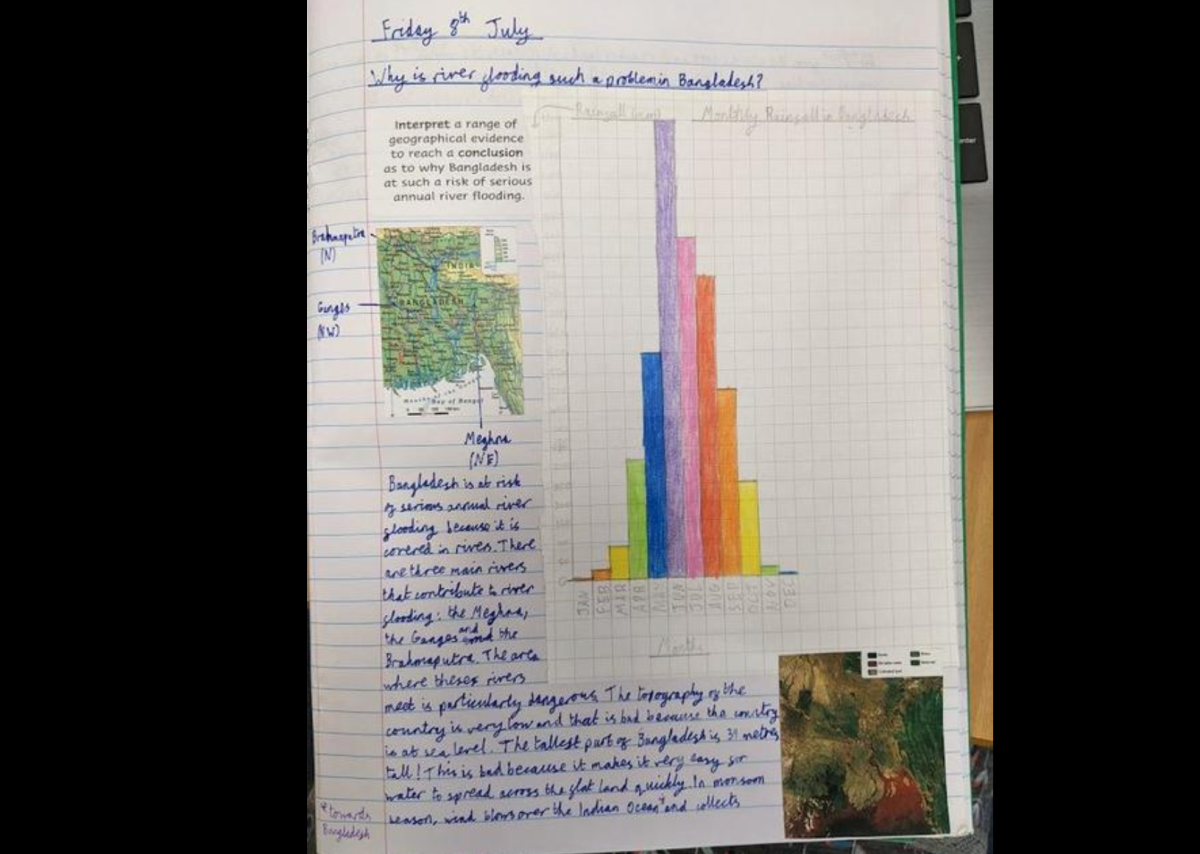 Friday 8th July
Why is river flooding such a problem in Bangladesh?
Interpret a range of
geographical evidence
to reach a conclusion
as to why Bangladesh is
at such a risk of serious
annual river flooding.
Rainfall (mm)
Monthly Rainfall in Bangladesh
Brahmaputra
(N)
INDIA
Ganges
(NW)
BANGLADESH
Mouths of the
Bay of Bengal
Meghna
(NE)
0
JAN
FEB
MAR
APR
MAY
JUN
JUL
AUG
SEP
OCT
NOV
DEC
Month
Bangladesh is at risk
of serious annual river
flooding because it is
covered in rivers. There
are three main rivers
that contribute to river
flooding: the Meghna,
the Ganges and the
Brahmaputra. The area
where theses rivers
meet is particularly dangerous. The topography of the
country is very low and that is bad because the country
is at sea level. The tallest part of Bangladesh is 31 metres
tall! This is bad because it makes it very easy for
water to spread across the flat land quickly. In monsoon
season, wind blows over the Indian Ocean* and collects
*towards
Bangladesh
enter